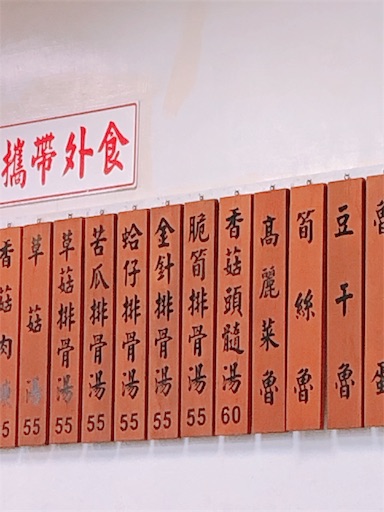 攜帶外食
香菇肉
5
草菇湯
55
草菇排骨湯
55
苦瓜排骨湯
55
蛤仔排骨湯
55
金針排骨湯
55
脆筍排骨湯
55
香菇頭髓湯
60
高麗菜魯
筍絲魯
豆干魯